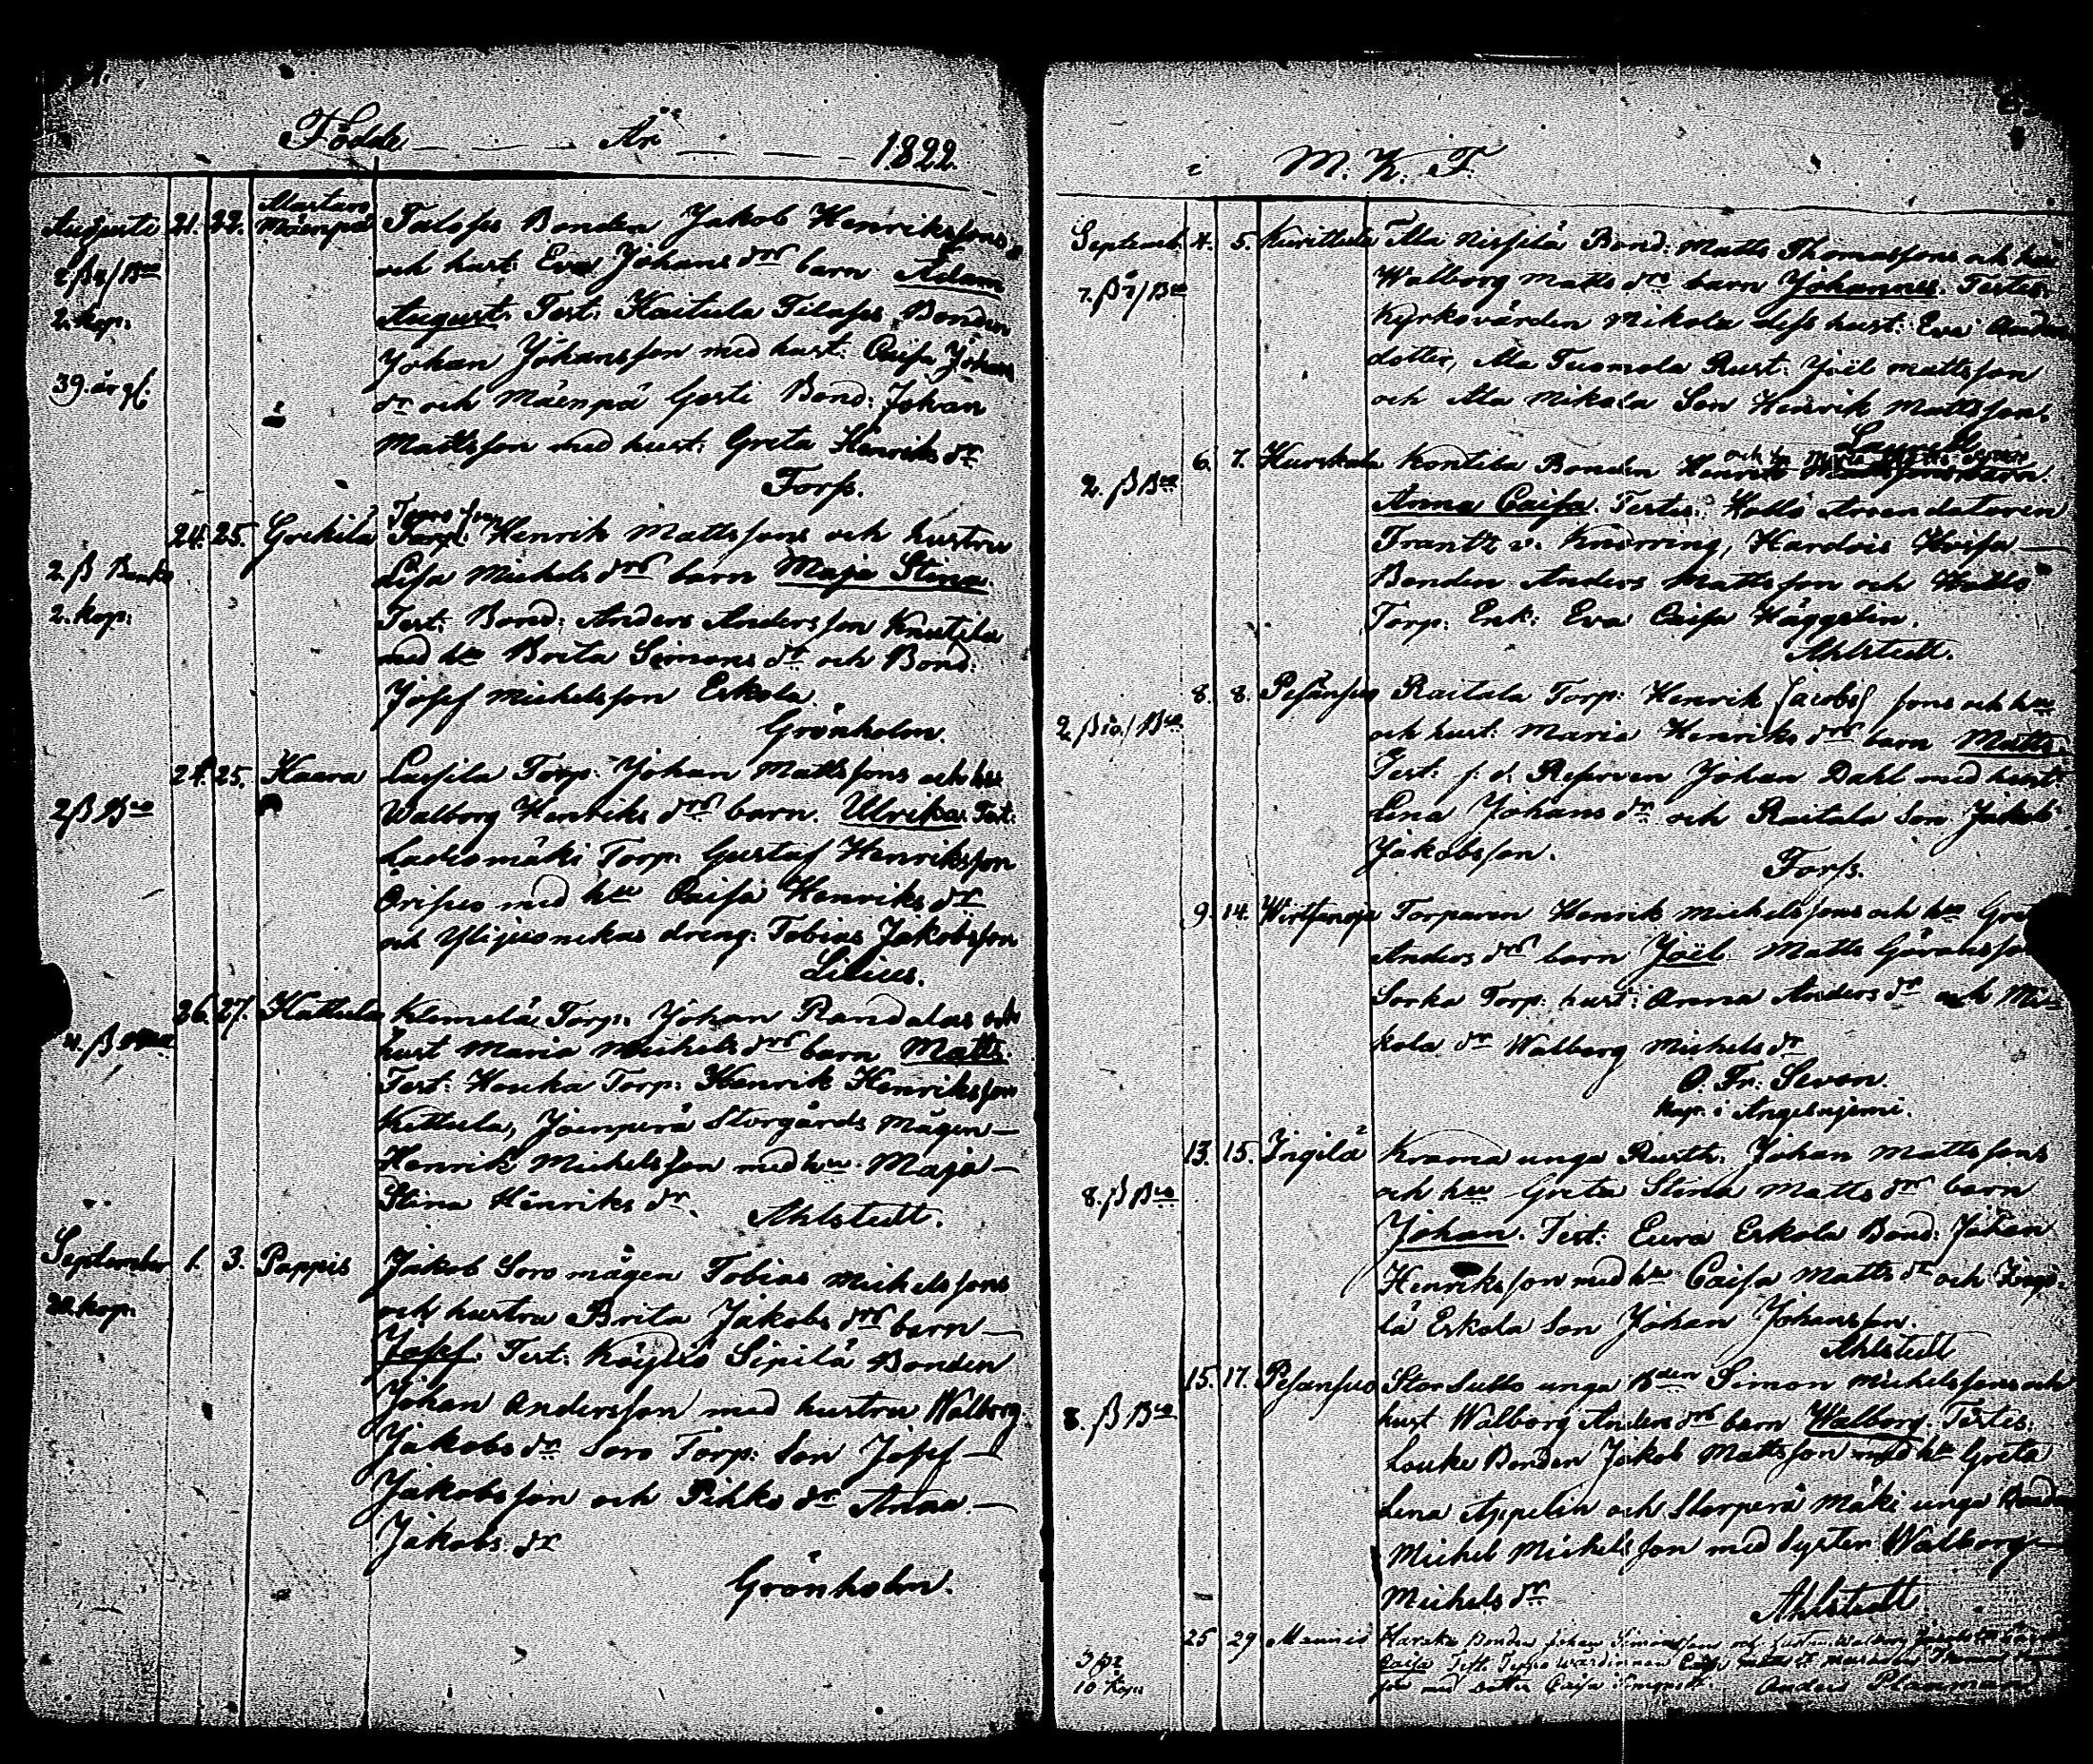 Födde År 1822.
Augusti 21. 22. Martan Mäenpä Talofs Bonden Jakob Henrikssons
2 β 4/ Bco och hust: Eva Johans drs barn Adam
2. kop: August. Test: Kaitula Filafss Bonden
Johan Johansson med hust: Caisa Johans
39. år gl: dr och Mäenpä Gosti Bond: Johan
Mattsson med hust: Greta Henriks dr
Forss.
24. 25. Grekilä Torp: Henrik Mattssons och hustru
2. β Banko Lisa Michels drs barn Maja Stina.
2. kop: Test: Bond: Anders Andersson Knutila
med hu Brita Simons dr och Bond:
Josef Michelsson Eskola.
Grönholm.
24. 25. Haara Lassila Torp: Johan Mattssons och hu
2 β Bco Walborg Henriks drs barn. Ulrika. Test:
Ladiomäki Torp: Gustaf Henriksson
Oripeo med hu Caisa Henriks dr
och Ylijuonikas dreng: Tobias Jakobsson
Lilius.
26. 27. Hattula Klemelä Torp: Johan Randalas och
4. β hust Maria Michels drs barn Matts.
Test: Henrik Henriksson
Kettula, Joenperä Storgårds Mågen
Henrik Michelsson med hu Maja
Stina Henriks dr. Ahlstedt.
September 1. 3. Pappis Jakob Soro mågen Tobias Michelssons
20. kop: och hustru Brita Jakobs drs barn
Josef. Test: Köyliö Sipilä Bonden
Johan Andersson med hustru Walborg
Jakobs dr Soro Torp: Son Josef
Jakobsson och Pihko dr Anna
Jakobs. dr
Grönholm.
M. K. F.
Septemb. 4. 5. Kurittula Ala Nissilä Bond: Matts Thomassons och hu
7. β Bco Walborg Matts drs barn Johannes. Testes:
Kyrkovärden Mikola dess hust: Eva
dotter, Ala Tuomola Rust: Joël Mattsson
och Ala Mikola Son Henrik Mattsson.
6. 7. Hurskala Kontila Bonden Henrik
2. β Bco Anna Caisa. Testes: Arrendatoren
Frantz v. Knorring, Hardois
Bonden Anders Mattsson och
Torp: Enk: Eva Caisa Häggelin.
Ahlstedt.
8. 8. Pesänsuo Raitala Torp: Henrik Jacobs sons och hu
2 β 10/ Bco och hust: Maria Henriks drs barn Matts.
Test: f. d. Reserven Johan Dahl med hust:
Lena Johans dr och Raitala Son Jakob
Jakobsson.
Forss.
9. 14. Wirtsanoja Torparen Henrik Michelssons och hu
Anders drs barn Joël. Matts Göransson
Sorka Torp: hust: Anna Anders dr och Mi-
kola dr Walborg Michels dr
O. Fr: Sevon.
Kap: i Angelnjemi.
13. 15. Ingilä Krama unga Rusth: Johan Mattssons
8. β Bco och hu Greta Stina Matts drs barn
Johan. Test: Eura Eskola Bond: Johan
Henriksson med hu Caisa Matts dr och Ingi-
lä Eskola Son Johan Johansson.
Ahlstedt
15. 17. Pesänsuo Stor Sutto unga Bden Simon Michelssons och
8. β Bco hust Walborg Anders drs barn Walborg. Testes:
Louke Bonden Jakob Mattsson med hu Greta
Lena Appelin och Storperä Mäki unga Bonden
Michel Michelsson med Syster Walborg
Michels dr
Ahlstedt
25 29 Harska Bonden Johan Simonssons och hustru Walborg
3 β
Caisa
10 kop: med dotter Caisa Anders Planman